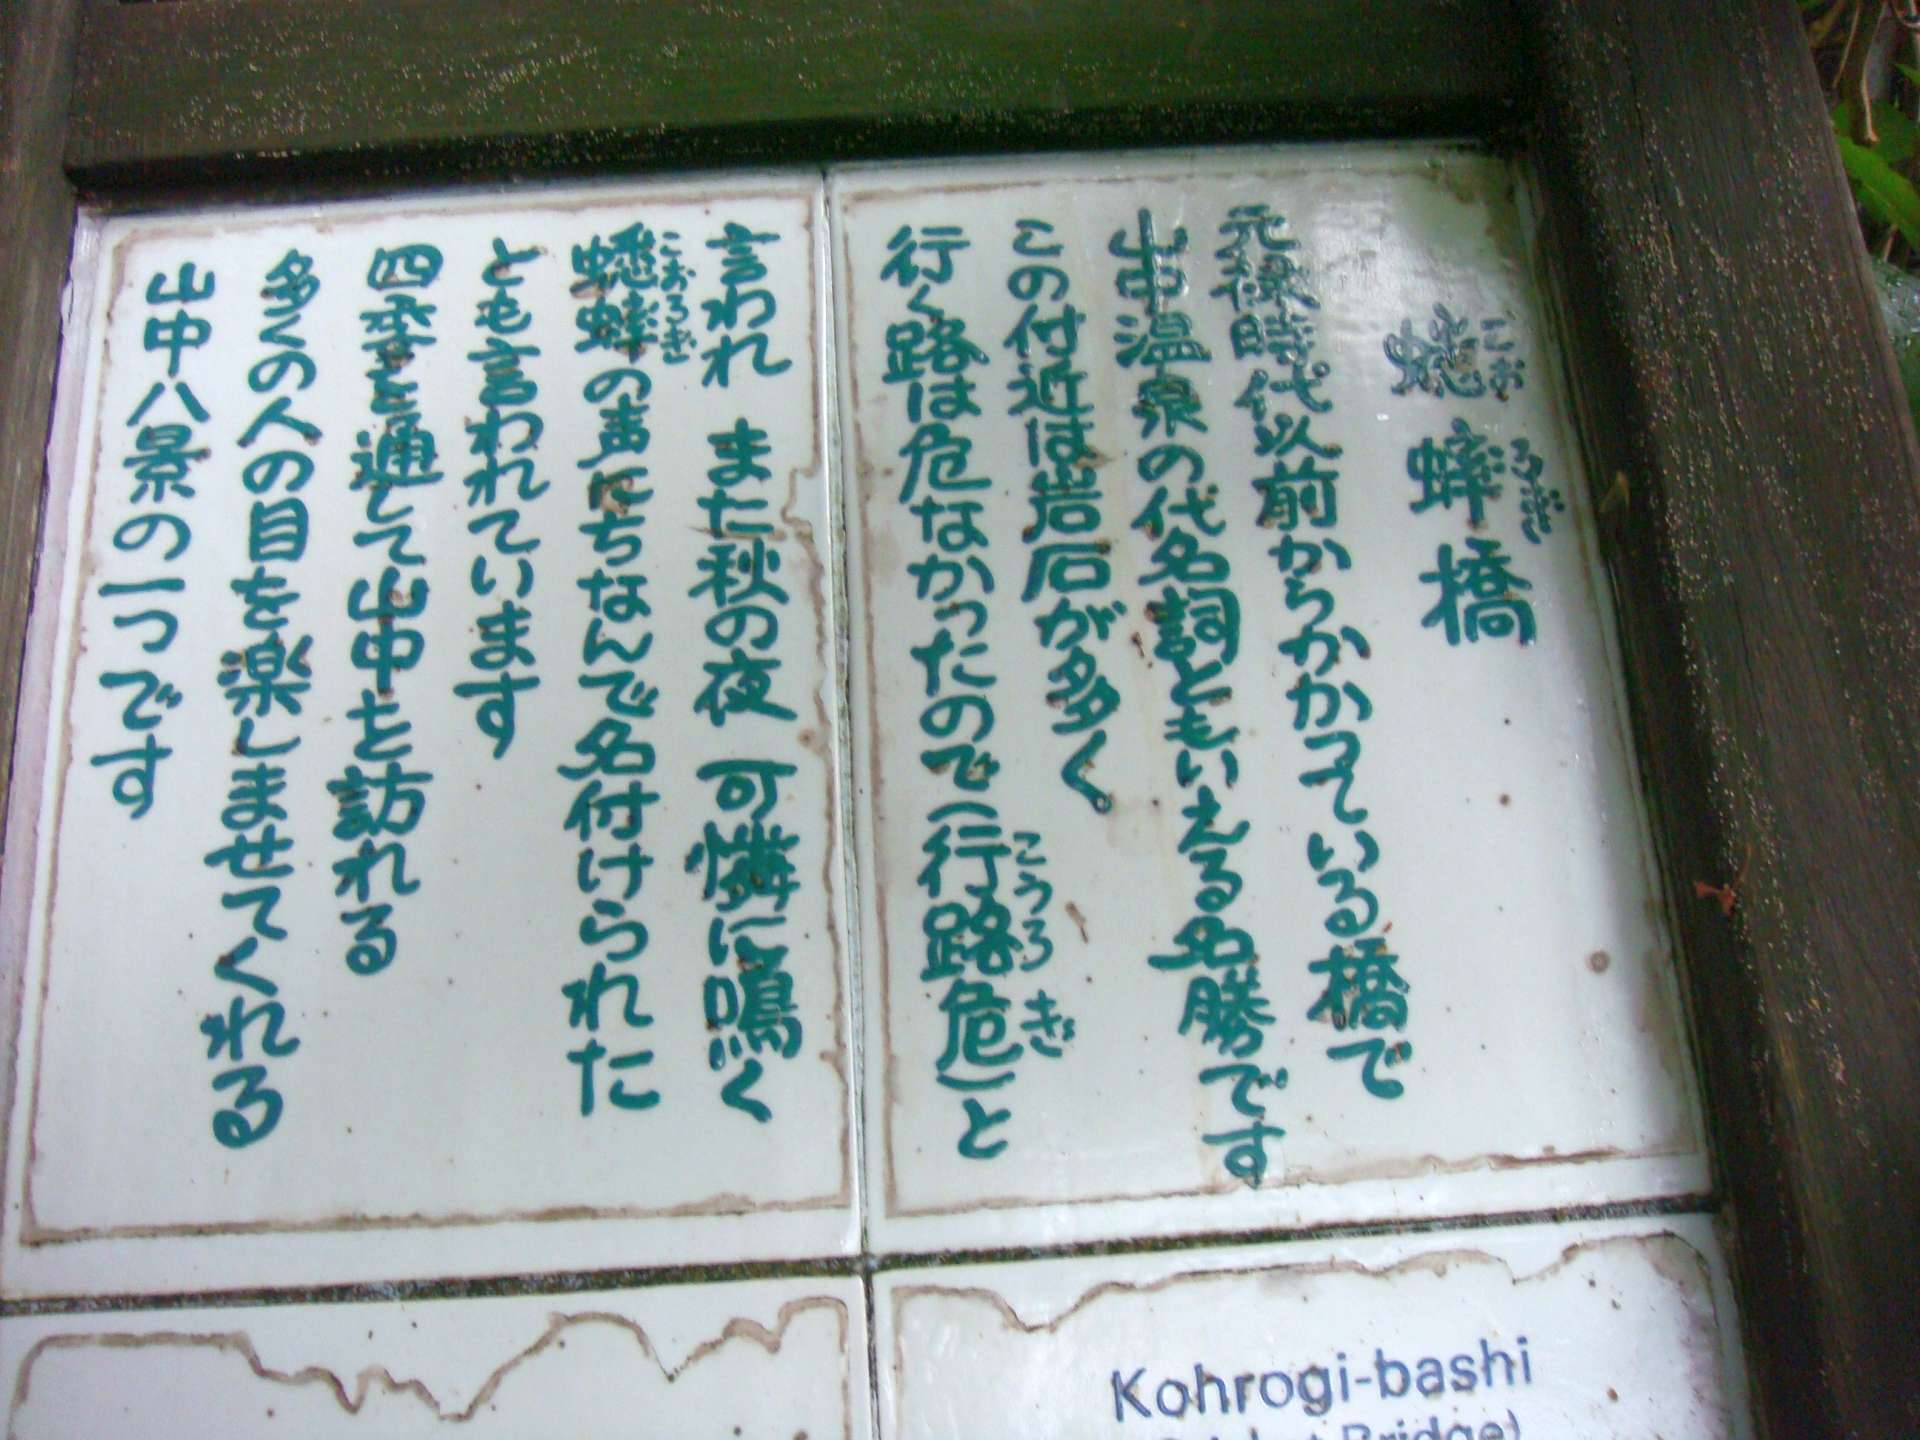 蟋蟀橋
こおろぎ
元禄時代以前からかかっている橋で
山中温泉の代名詞ともいえる名勝です
この付近は岩石が多く
行く路は危なかったので(行路危)と
こうろき
言われ また秋の夜 可憐に鳴く
蟋蟀の声にちなんで名付けられた
こおろぎ
とも言われています
四季を通して山中を訪れる
多くの人の目を楽しませてくれる
山中八景の一つです
Kohrogi-bashi
Bridge)